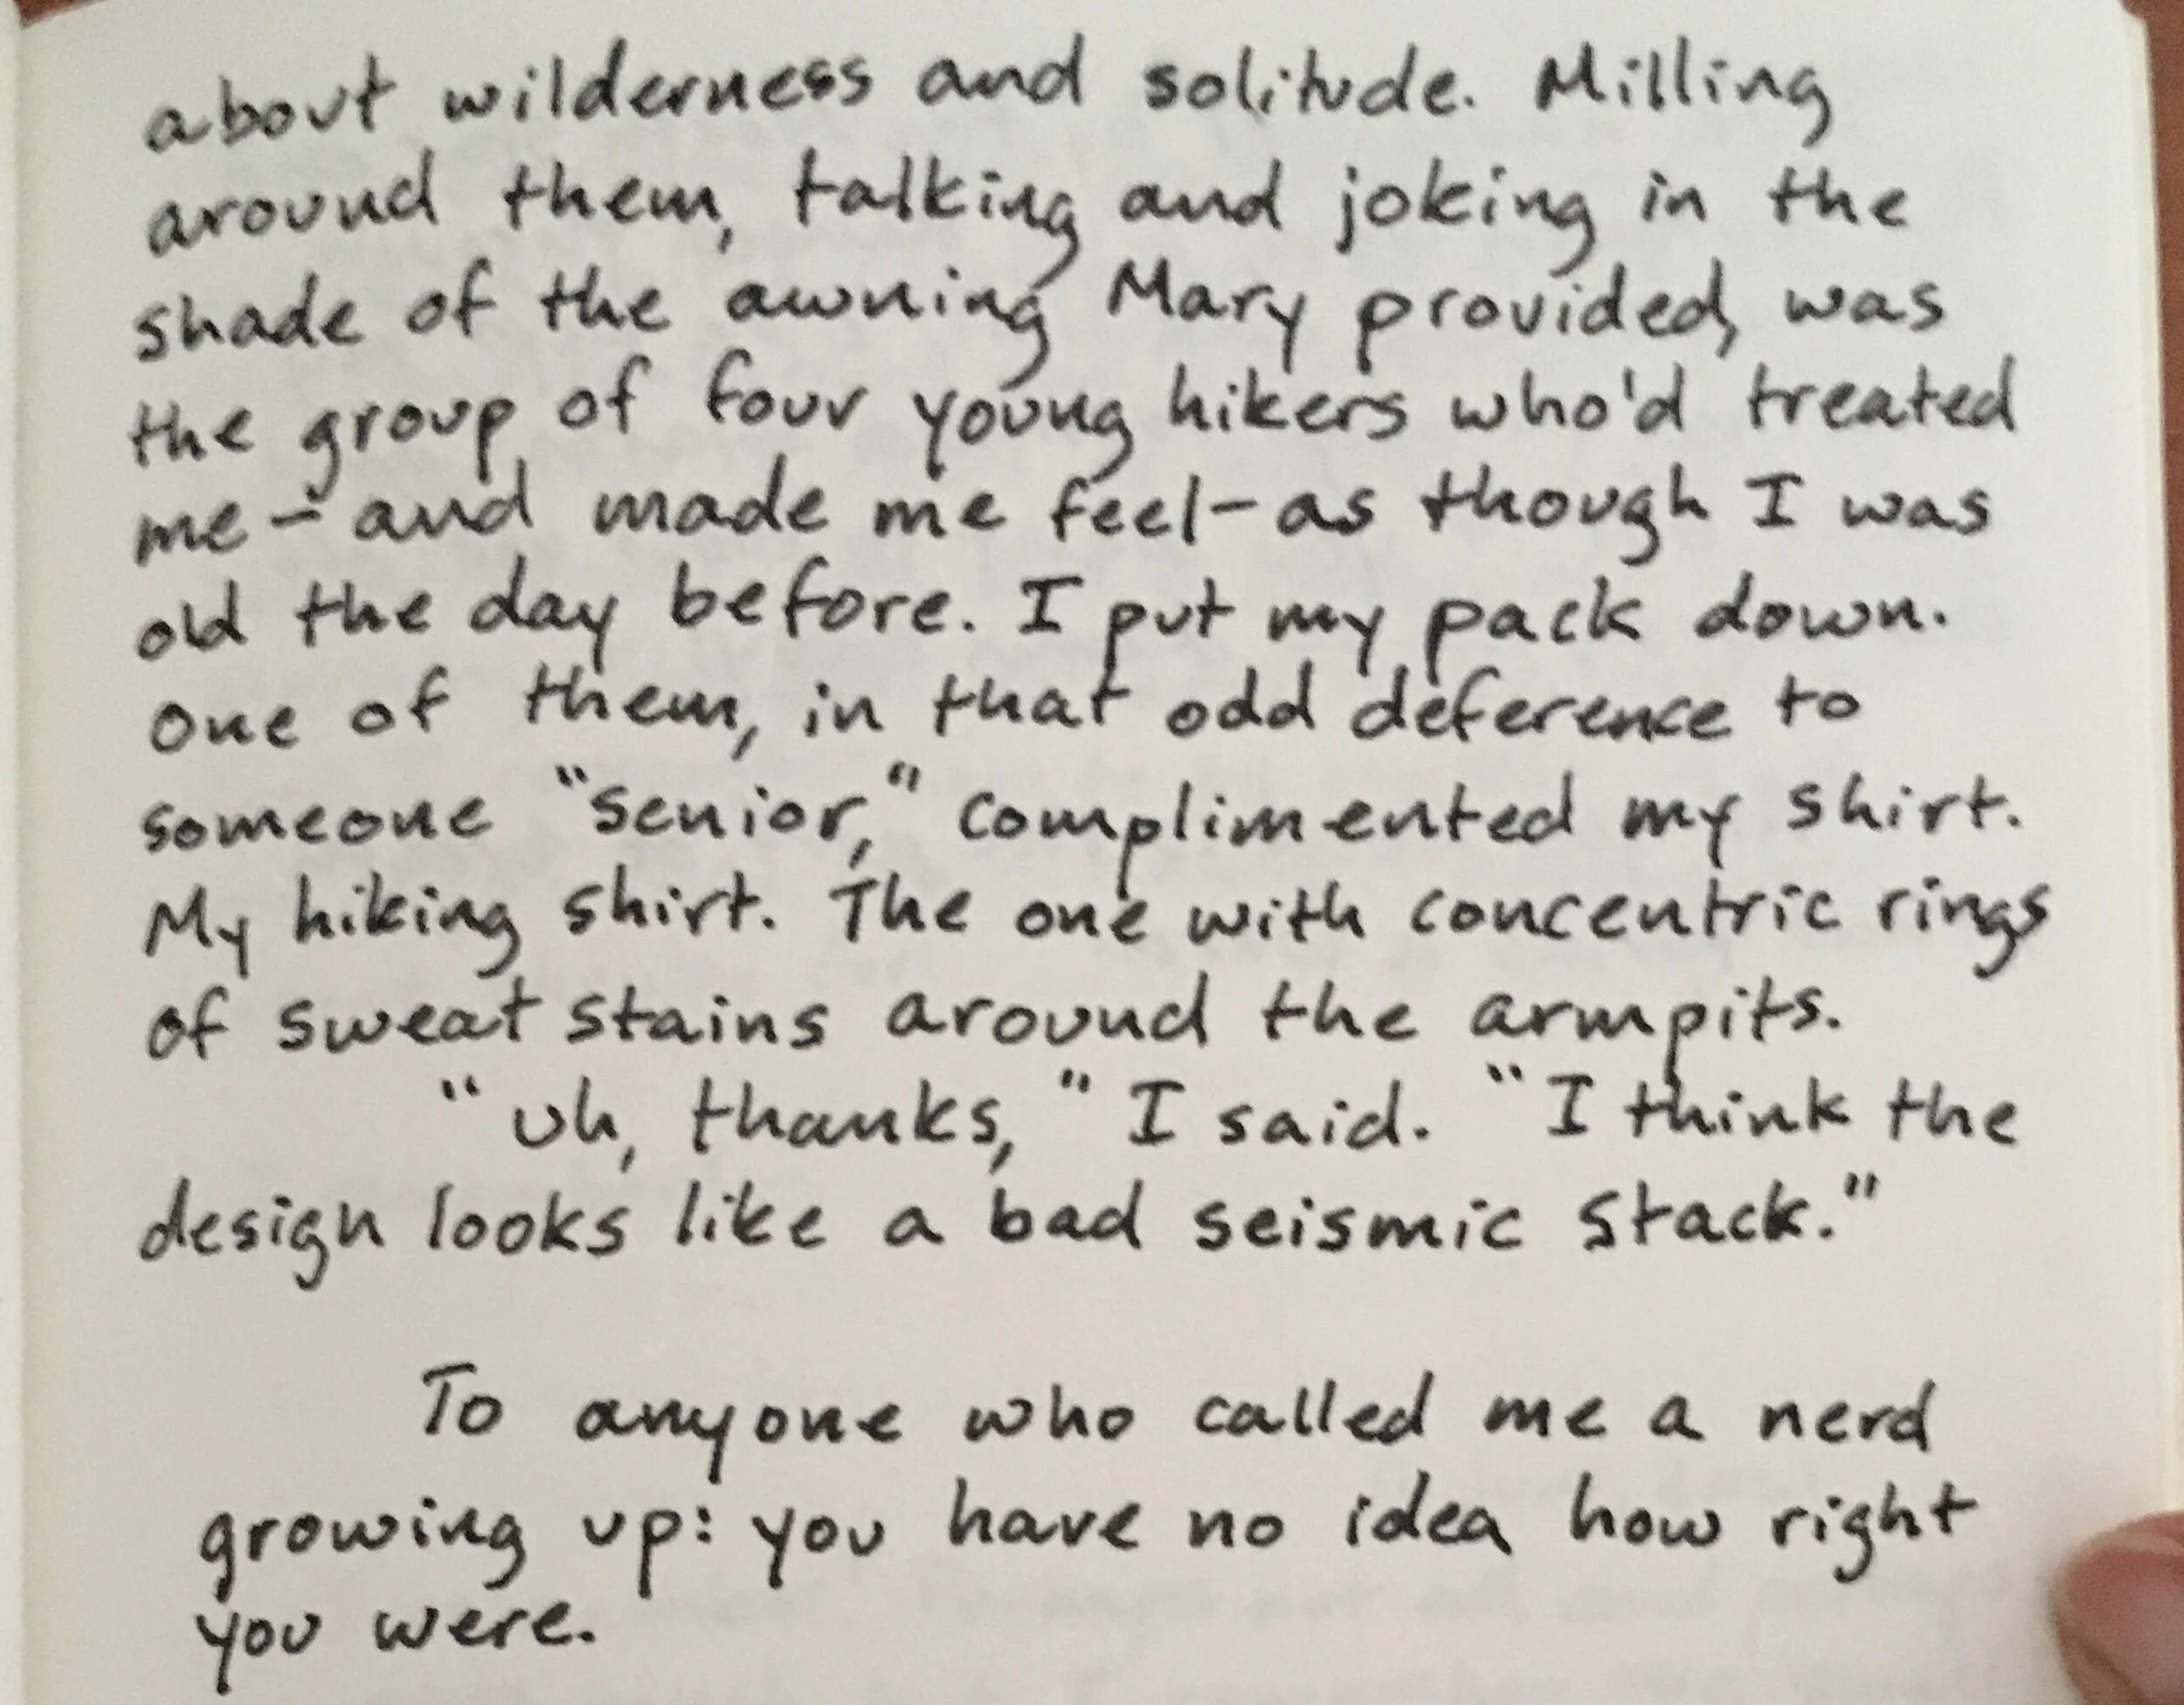 about wilderness and solitude. Milling
around them, talking and joking in the
shade of the awning Mary provided, was
the group of four young hikers who'd treated
me - and made me feel - as though I was
old the day before. I put my pack down.
One of them, in that odd deference to
someone "senior," complimented my shirt.
My hiking shirt. The one with concentric rings
of sweat stains around the armpits.
"Uh, thanks," I said. "I think the
design looks like a bad seismic stack."
To anyone who called me a nerd
growing up: you have no idea how right
you were.